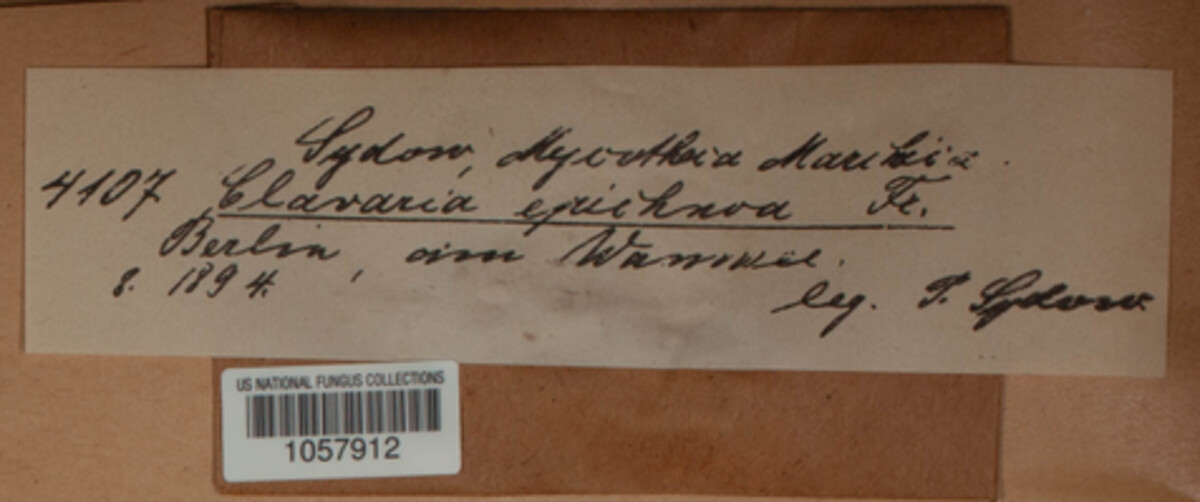 Sydow, Mycotheca Marchica.
4107 Clavaria epichnoa Fr.
Berlin, am Wannsee.
8. 1894. leg. P. Sydow.
US NATIONAL FUNGUS COLLECTIONS
1057912